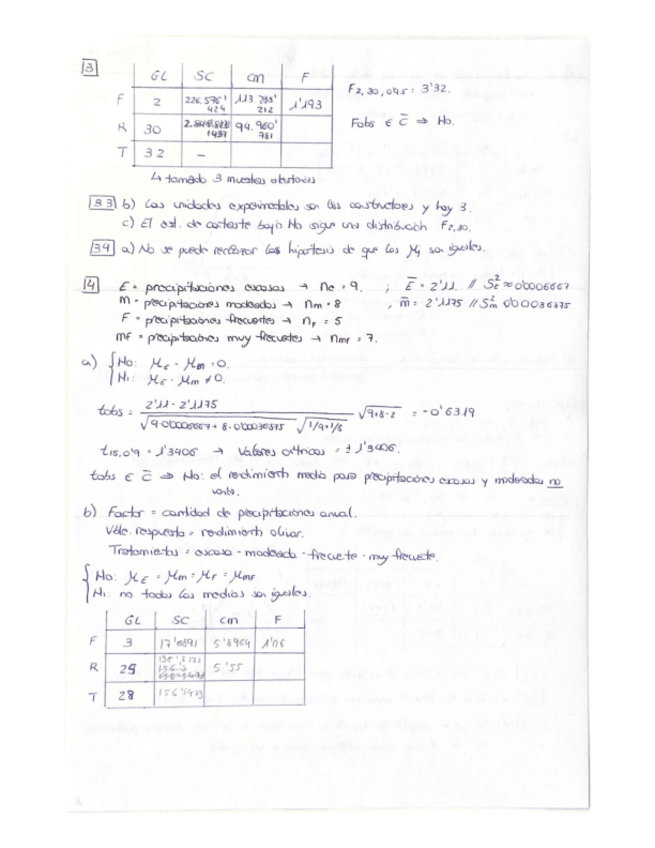 3
GL SC CM F
F 2 226.576'424 113.288'212 1'193
R 30 94.960'781
T 32 -
F2,30,0'95 = 3'32.
Fobs ∈ C̄ ⇒ Ho.
↳ tomado 3 muestras aleatorias
33 b) Las unidades experimentales son los constructores y hay 3.
c) El est. de contraste bajo Ho sigue una distribución F2,30.
34 a) No se puede rechazar las hipótesis de que las μi son iguales.
4 E = precipitaciones escasas → ne = 9. ; Ē = 2'11. // Se² ≈ 0'0006667
M = precipitaciones moderadas → nm = 8 ; m̄ = 2'1175 //
F = precipitaciones frecuentes → nF = 5
MF = precipitaciones muy frecuentes → nMF = 7.
a) { Ho: μE - μm = 0.
H1: μE - μm ≠ 0.
tobs = 2'11 - 2'1175 √9+8-2 = -0'6319
√1/9+1/8
t15,0'9 = 1'3406 → Valores críticos = ± 1'3406.
tobs ∈ C̄ ⇒ Ho: el rendimiento medio para precipitaciones escasas y moderadas no
varía.
b) Factor = cantidad de precipitaciones anual.
Vble. respuesta = rendimiento olivar.
Tratamientos = escasa - moderada - frecuente - muy frecuente.
{ Ho: μE = μm = μF = μMF
H1: no todas las medias son iguales.
GL SC CM F
F 3 17'6891 5'8964 1'06
R 25 5'55
T 28 156'5473